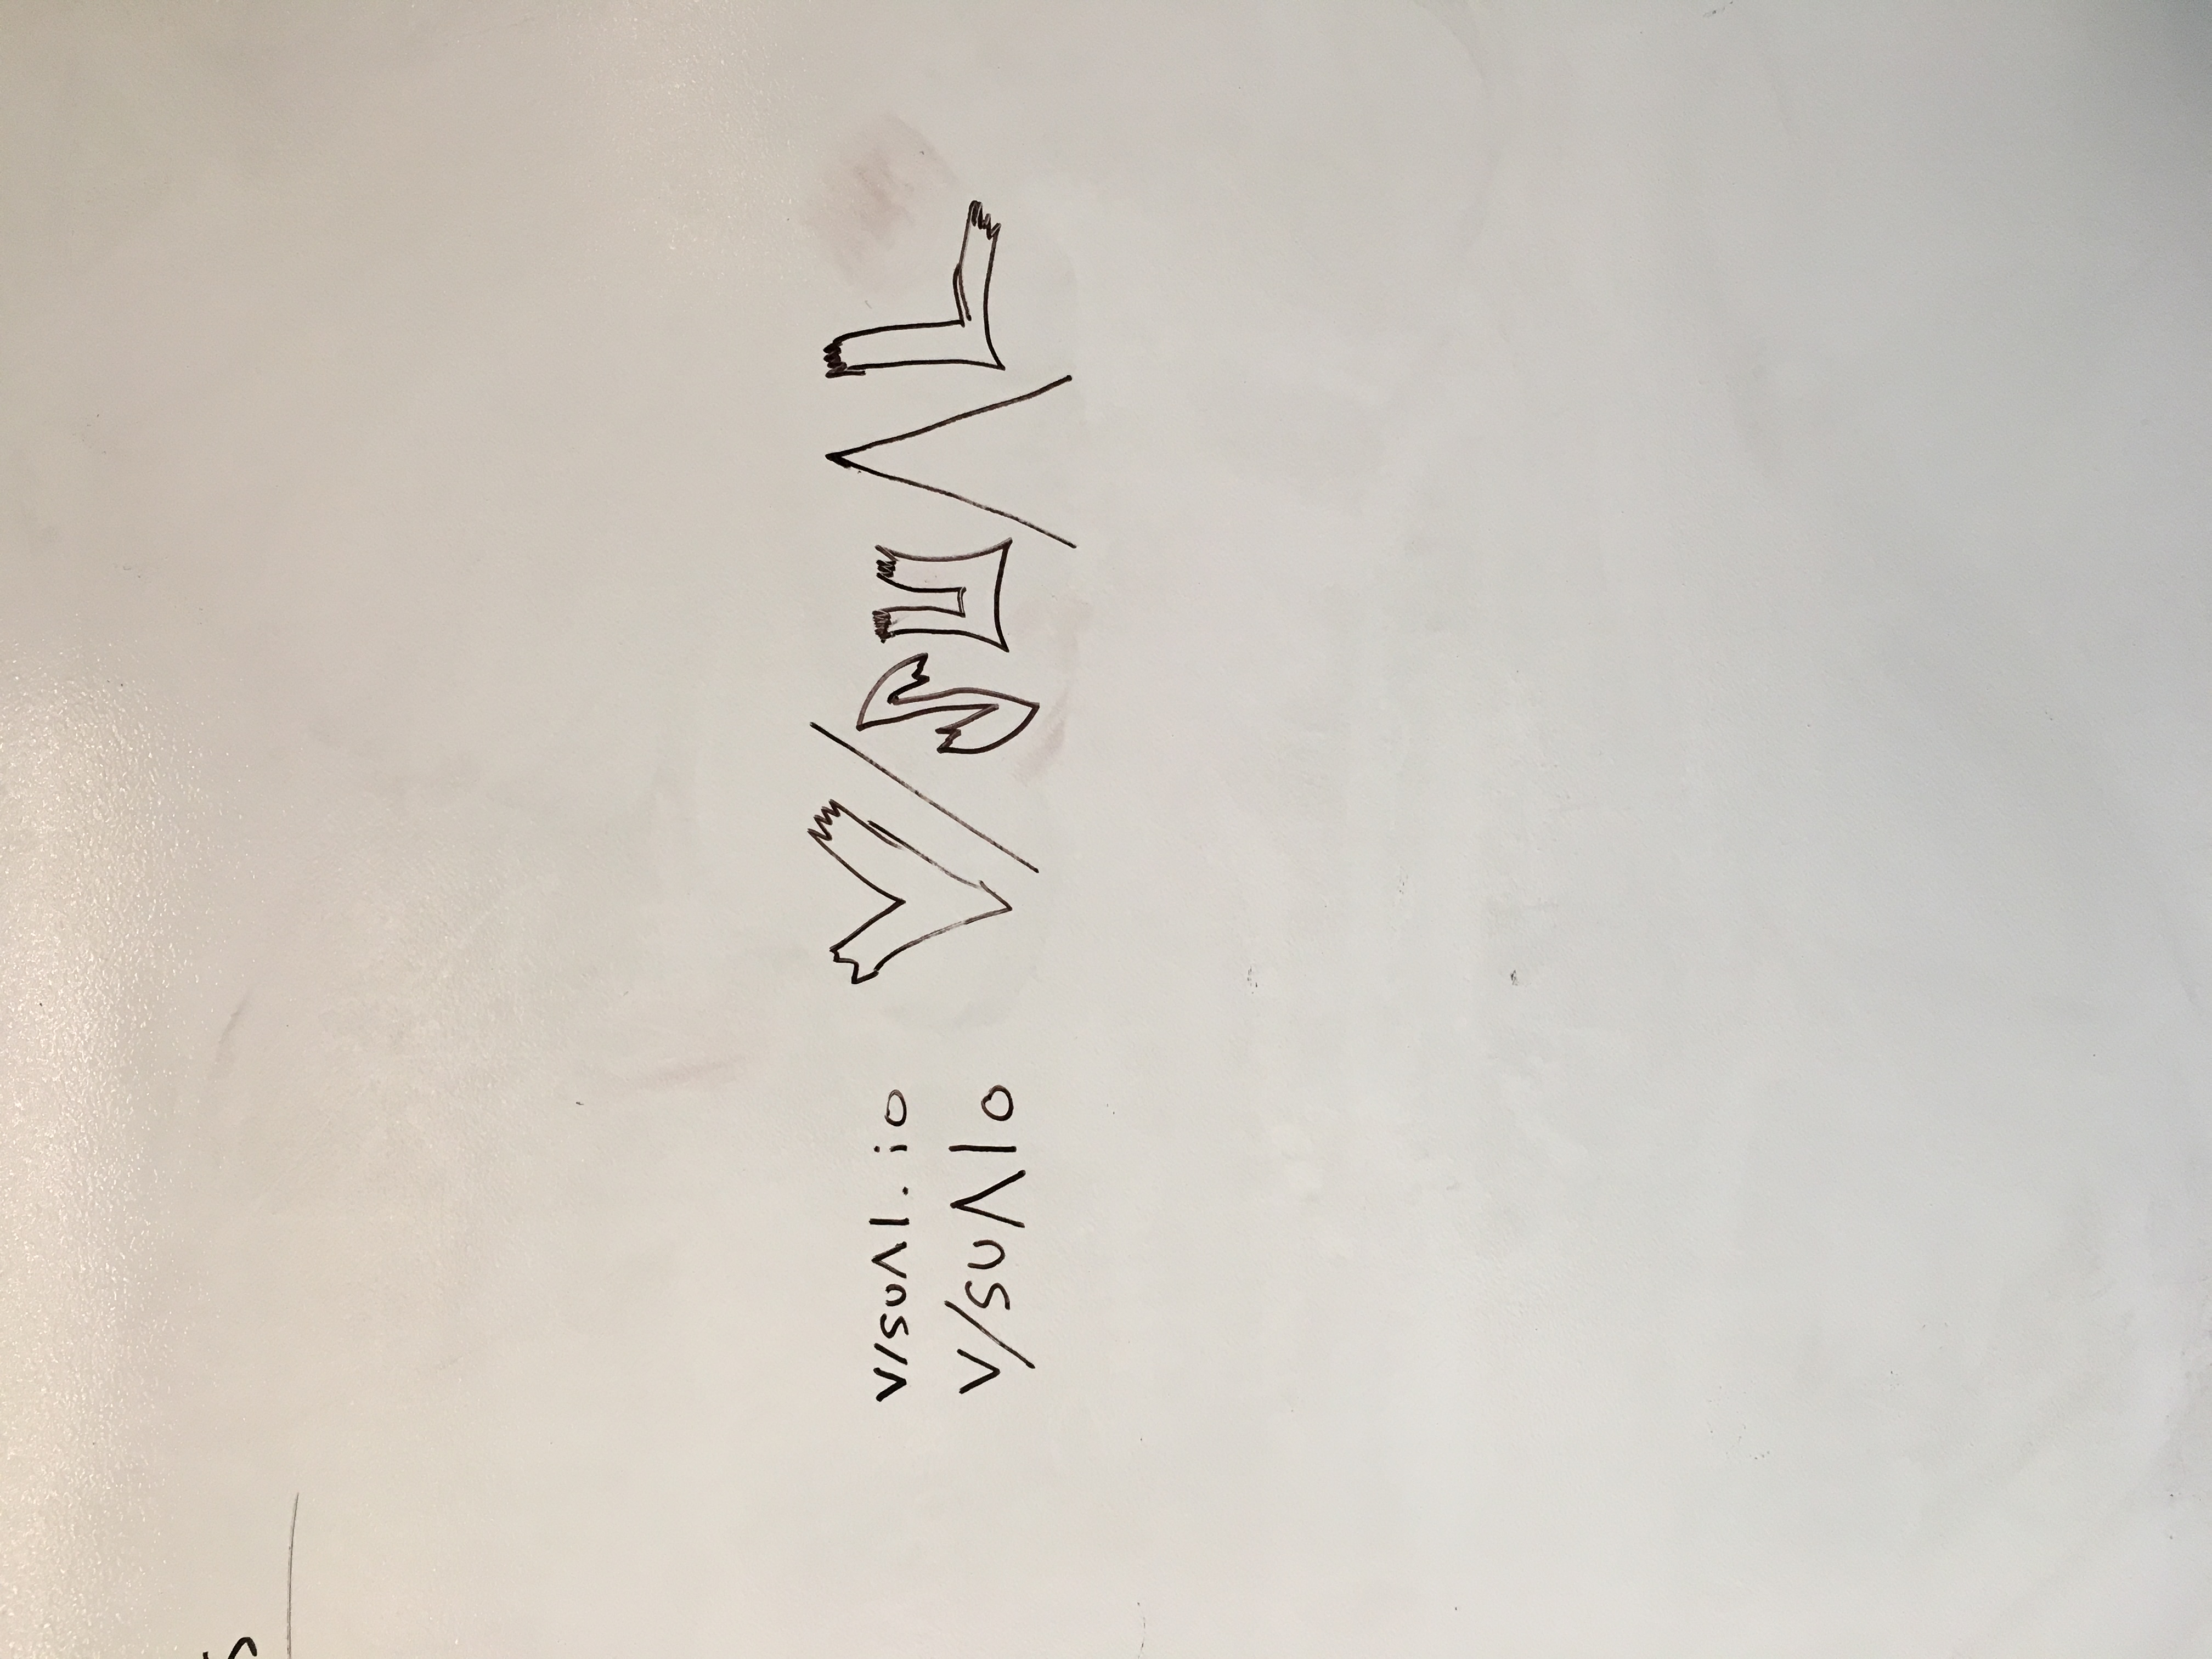 s
V/SUΛL.io
V/SUΛLo
V/SUΛL